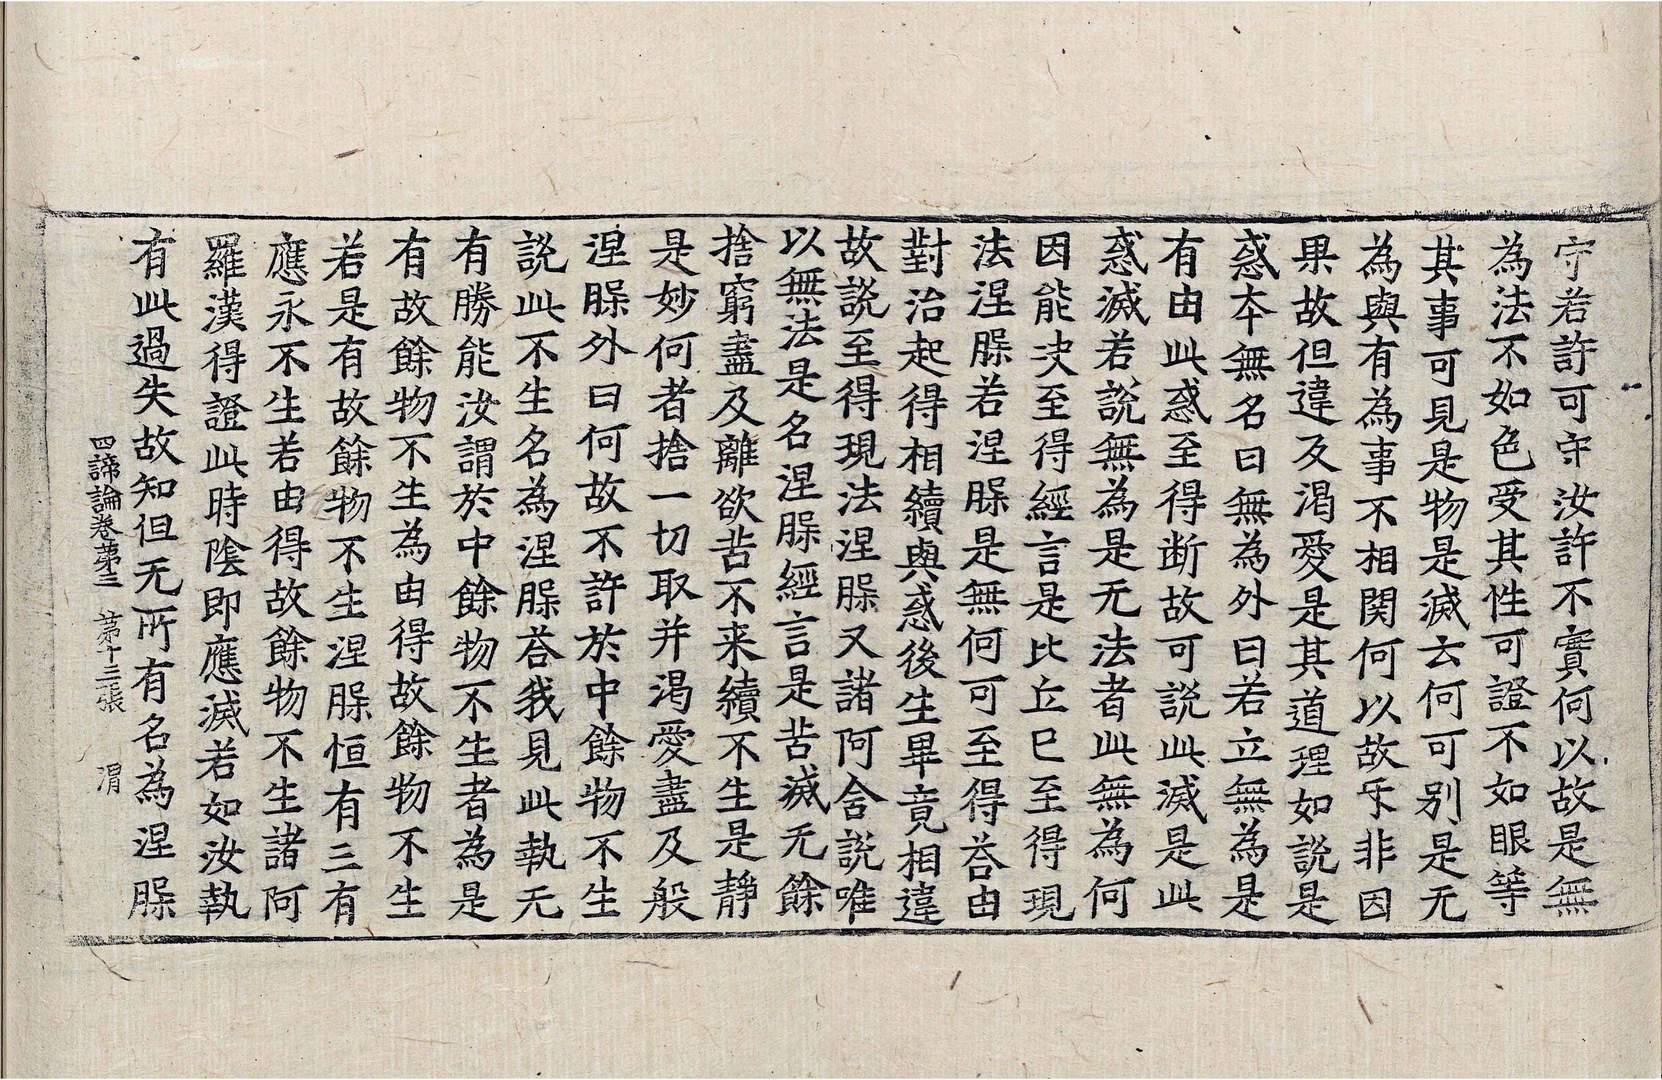 守若許可守汝許不實何以故是無
為法不如色受其性可證不如眼等
其事可見是物是滅云何可別是无
為與有為事不相関何以故乐非因
果故但違及渇愛是其道理如說是
惑本無名曰無為外曰若立無為是
有由此惑至得断故可說此滅是此
惑滅若說無為是无法者此無為何
因能决至得經言是比丘已至得現
法涅脲若涅脲是無何可至得荅由
對治起得相續與惑後生畢竟相違
故說至得現法涅脲又諸阿舍說唯
以無法是名涅脲經言是苦滅无餘
捨窮盡及離欲苦不来續不生是靜
是妙何者捨一切取并渇愛盡及般
涅脲外曰何故不許於中餘物不生
說此不生名為涅脲荅我見此執无
有勝能汝謂於中餘物不生者為是
有故餘物不生為由得故餘物不生
若是有故餘物不生涅脲恒有三有
應永不生若由得故餘物不生諸阿
羅漢得證此時陰即應滅若如汝執
有此過失故知但无所有名為涅脲
四諦論卷苐三　苐十三張　渭